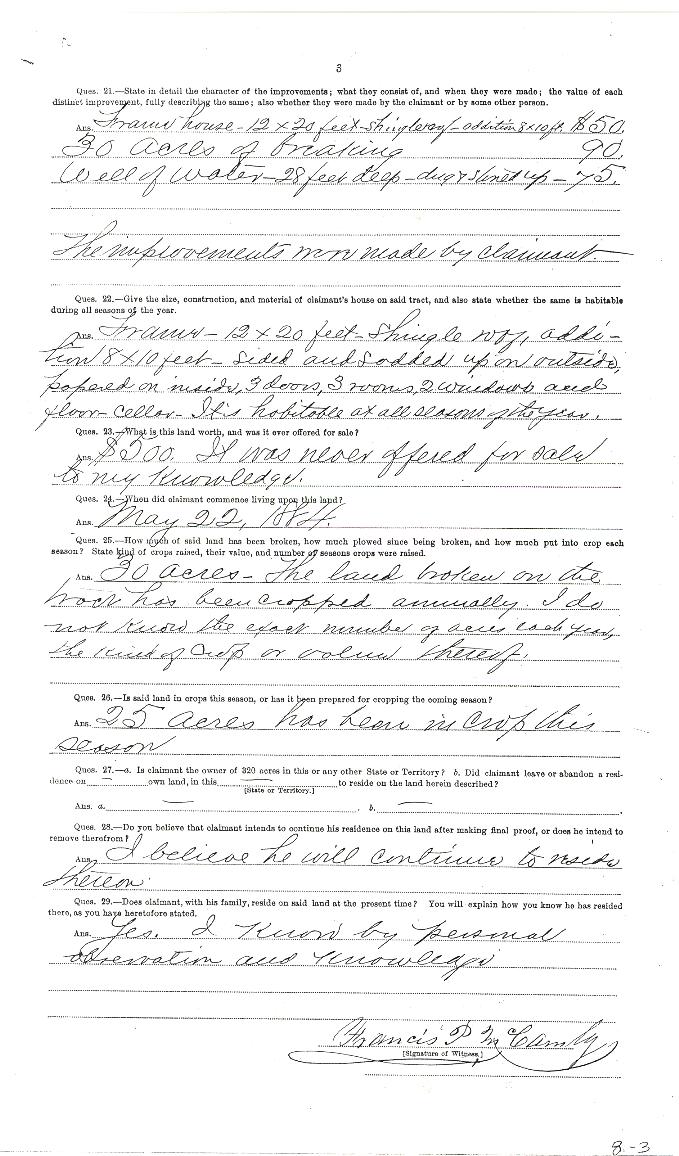 3
Ques. 21.—State in detail the character of the improvements; what they consist of, and when they were made; the value of each
distinct improvement, fully describing the same; also whether they were made by the claimant or by some other person.
Ans. Frame house - 12 x 20 feet - shingle roof - addition 8 x 10 ft. $50.
30 acres of breaking 90.
Well of water - 28 feet deep - dug & stoned up - 75.
The improvements were made by claimant.
Ques. 22.—Give the size, construction, and material of claimant's house on said tract, and also state whether the same is habitable
during all seasons of the year.
Ans. Frame - 12 x 20 feet - Shingle roof, addi-
tion 8 x 10 feet - sided and sodded up on outside,
papered on inside, 3 doors, 3 rooms, 2 windows and
floor - cellar - It is habitable at all seasons of the year.
Ques. 23.—What is this land worth, and was it ever offered for sale?
Ans. $500. It was never offered for sale
to my knowledge.
Ques. 24.—When did claimant commence living upon this land?
Ans. May 22, 1884.
Ques. 25.—How much of said land has been broken, how much plowed since being broken, and how much put into crop each
season? State kind of crops raised, their value, and number of seasons crops were raised.
Ans. 30 acres - The land broken on the
tract has been cropped annually. I do
not know the exact number of acres each year,
the kind of crop or value thereof.
Ques. 26.—Is said land in crops this season, or has it been prepared for cropping the coming season?
Ans. 25 acres has been in crop this
season
Ques. 27.—a. Is claimant the owner of 320 acres in this or any other State or Territory? b. Did claimant leave or abandon a resi-
dence on — own land, in this — to reside on the land herein described?
[State or Territory.]
Ans. a. — , b. — .
Ques. 28.—Do you believe that claimant intends to continue his residence on this land after making final proof, or does he intend to
remove therefrom?
Ans. I believe he will continue to reside
thereon.
Ques. 29.—Does claimant, with his family, reside on said land at the present time? You will explain how you know he has resided
there, as you have heretofore stated.
Ans. Yes. I know by personal
observation and knowledge
Francis P
[Signature of Witness.]
8-3